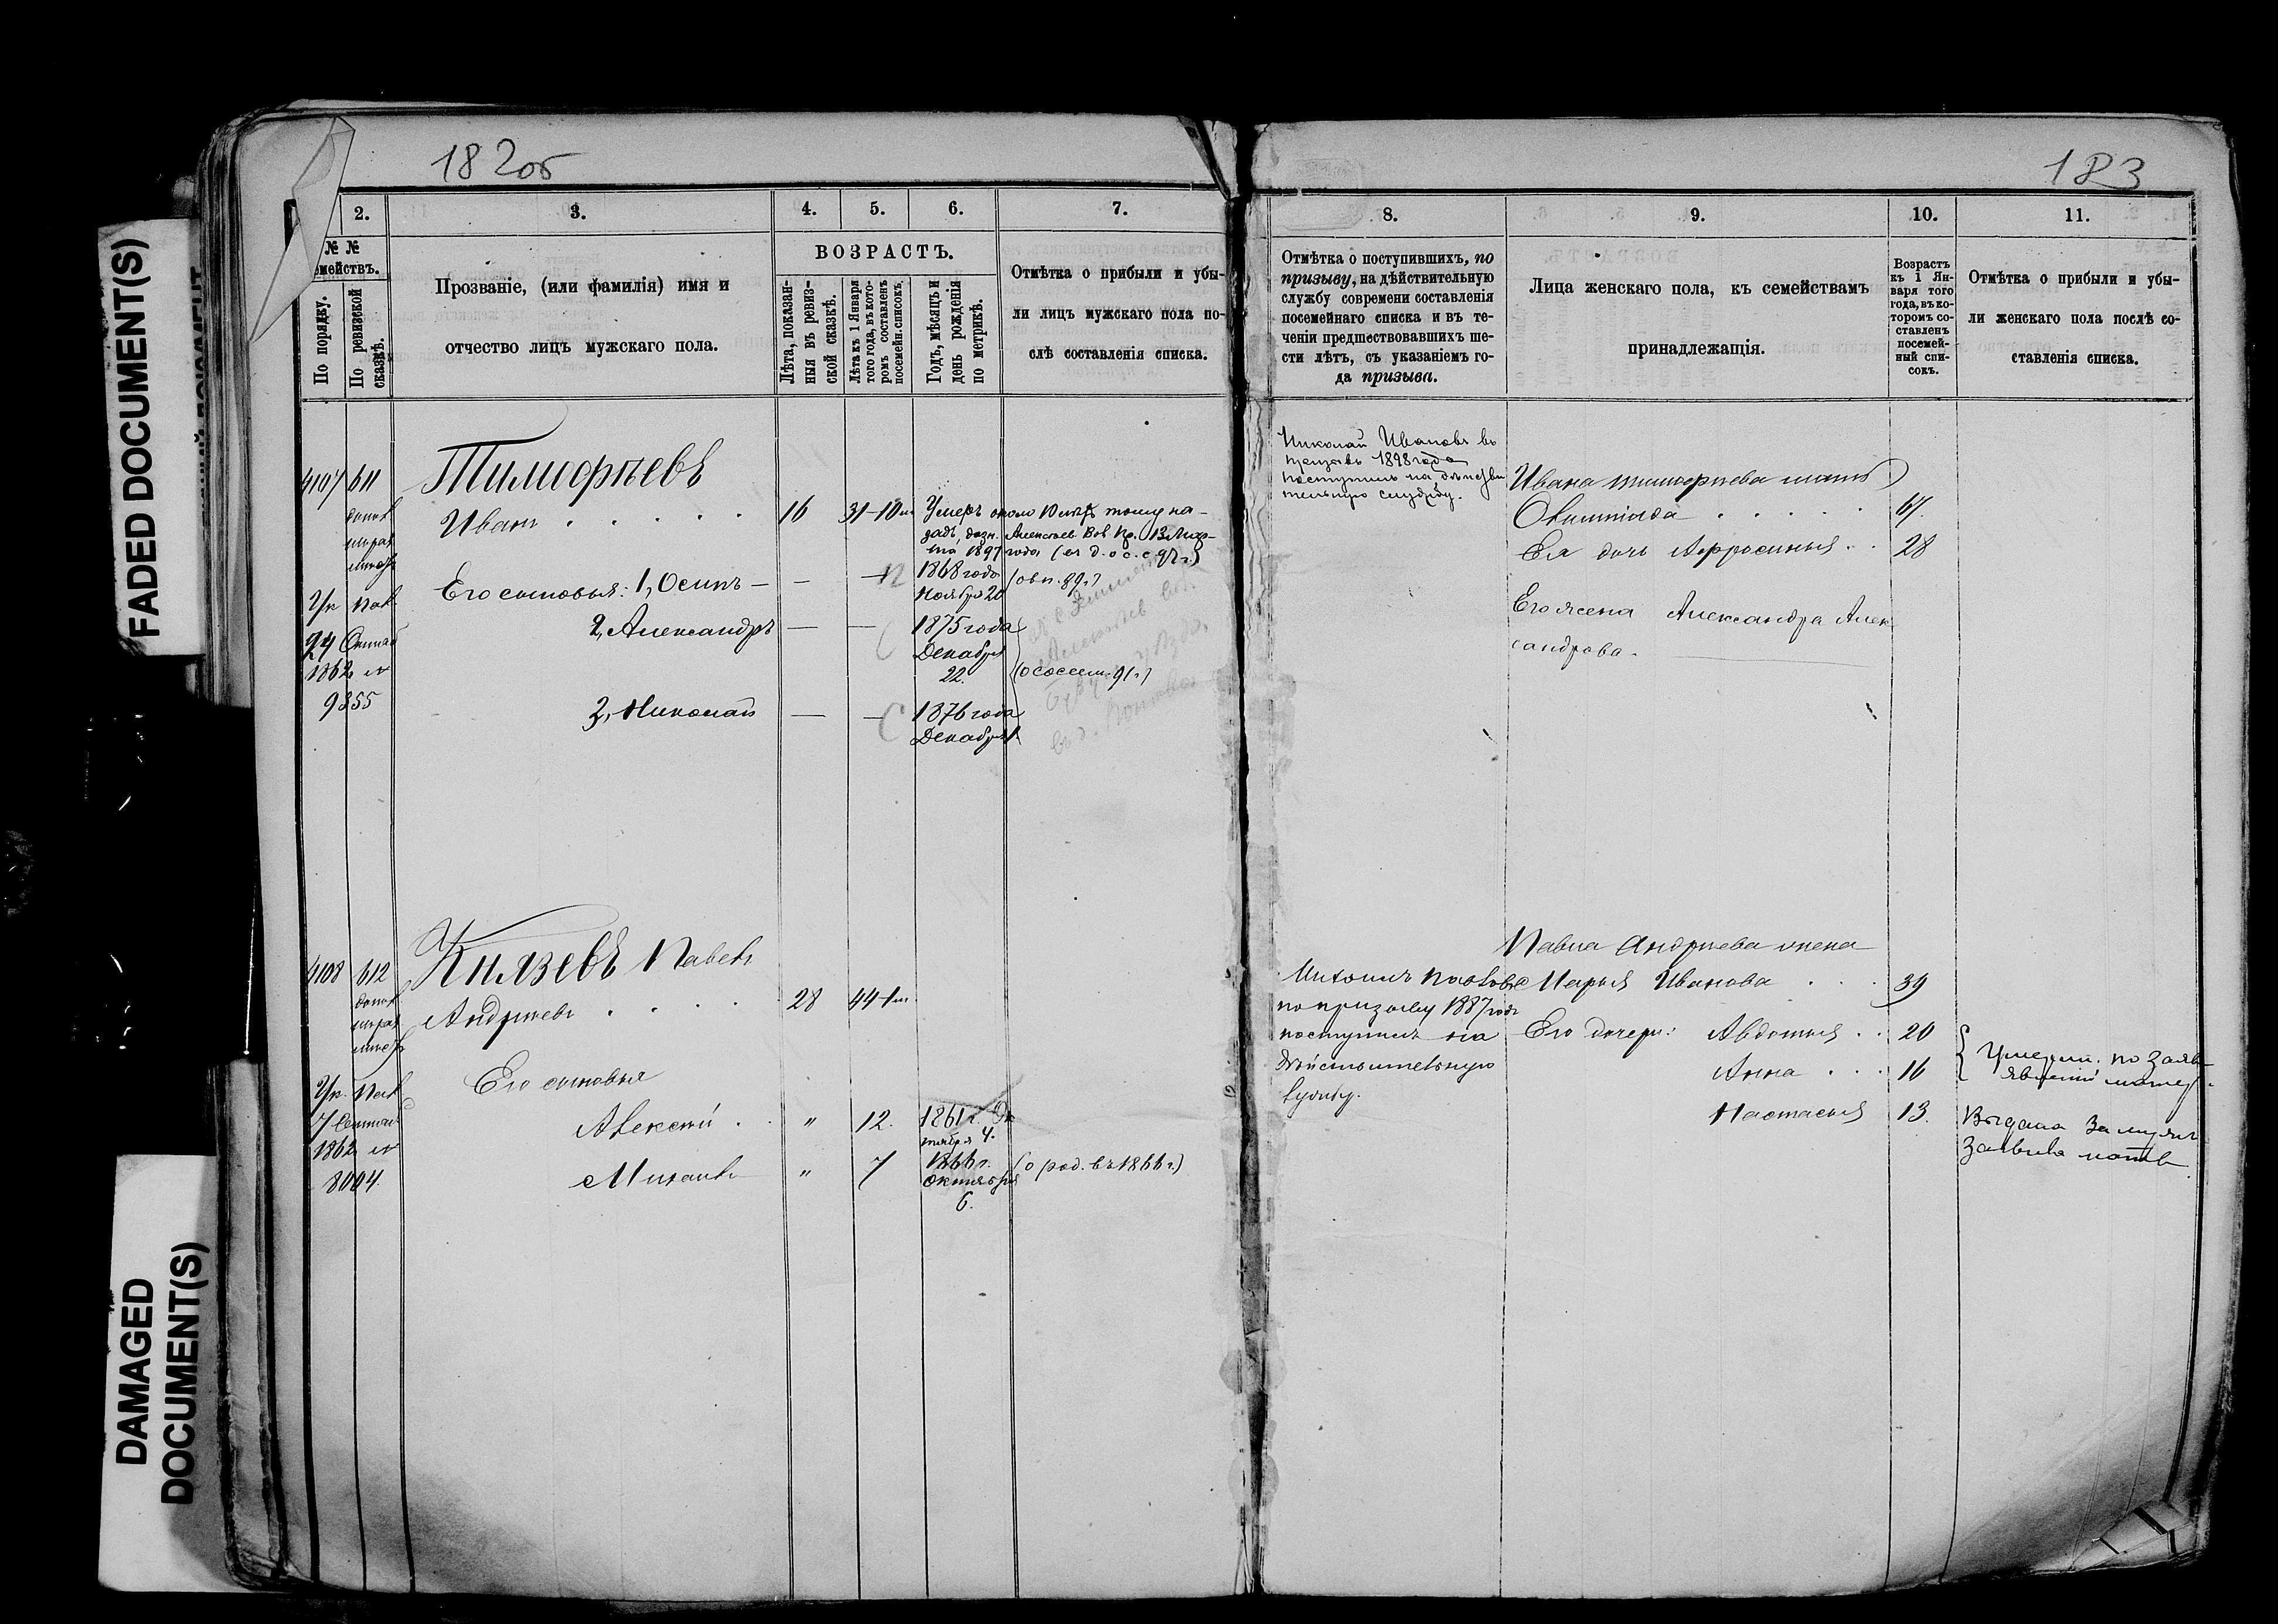 FADED DOCUMENT(S)
DAMAGED
DOCUMENT(S)
182об
2.
3.
4.
5.
6.
7.
№ №
емействъ.
По порядку.
По ревизской
сказкѣ.
Прозваніе, (или фамилія) имя и
отчество лицъ мужскаго пола.
ВОЗРАСТЪ.
Лѣта, показан-
ныя въ ревиз-
ской сказкѣ.
Лѣта къ 1 Января
того года, въ кото-
ромъ составленъ
посемейн. списокъ.
Годъ, мѣсяцъ и
день рожденія
по метрикѣ.
Отмѣтка о прибыли и убы-
ли лицъ мужскаго пола по-
слѣ составленія списка.
4107
611
Тимофѣевъ
Иванъ
16
31-10м
Умеръ около 10 лѣтъ тому на-
задъ, дозн. Алексѣев. Вол. Пр. 13 Мар-
та 1897 года
Его сыновья: 1, Осипъ —
12
1868 года
Ноября 20
2, Александръ
1875 года
Декабря
22.
3, Николай
1876 года
Декабря
24
1862
9355
4108
612
Князевъ Павелъ
Андреевъ
28
44
Его сыновья
Алексѣй
"
12.
1861 г.
4.
Михаилъ
"
7
1866 г.
Октября
6.
(о род. въ 1866 г.)
7
1862
8004
183
8.
9.
10.
11.
Отмѣтка о поступившихъ, по
призыву, на дѣйствительную
службу современи составленія
посемейнаго списка и въ те-
ченіи предшествовавшихъ ше-
сти лѣтъ, съ указаніемъ го-
да призыва.
Лица женскаго пола, къ семействамъ
принадлежащія.
Возрастъ
къ 1 Ян-
варя того
года, въ ко-
торомъ со-
ставленъ
посемей-
ный спи-
сокъ.
Отмѣтка о прибыли и убы-
ли женскаго пола послѣ со-
ставленія списка.
Николай Ивановъ въ
призывъ 1898 года
поступилъ на дѣйстви
тельную службу.
Ивана Тимофѣева мать
Олимпіада
Ея дочь Афросинья
28
Его жена Александра Алек
сандрова.
Павла Андреева жена
Марья Иванова
39
Михаилъ Павловъ
по призыву 1887 года
поступилъ на
дѣйствительную
службу.
Его дочери: Авдотья
20
Анна
16
Настасья
13.
Умерли. по заяв
Выдана замужъ
Заявила мать